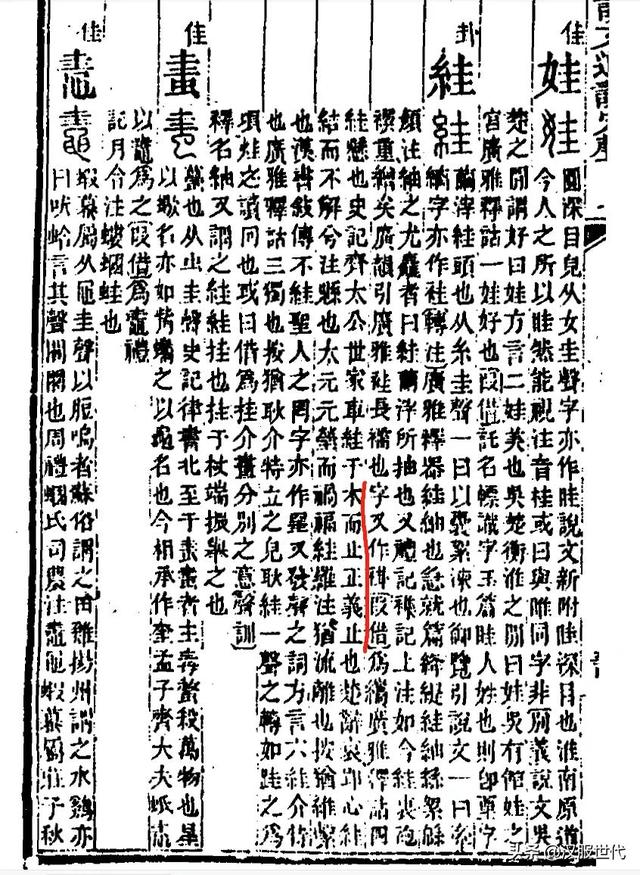 說文通訓定聲
佳
娃 娃 圜深目皃从女圭聲字亦作眭說文新附眭深目也淮南原道
今人之所以眭然能視注音桂或曰與睢同字非別義說文吳
楚之閒謂好曰娃方言二娃美也吳楚衡淮之閒曰娃吳有館娃之
宮廣雅釋詁一娃好也叚借託名幖識字玉篇眭人姓也則卽字
卦
絓 絓 繭滓絓頭也从糸圭聲一曰以囊絮湅也御覽引說文一曰糸
繣字亦作袿轉注廣雅釋器絓紬也急就篇絳緹絓紬絲絮緜
顏注紬之尤麤者曰絓繭滓所抽也又禮記雜記上注如今袿袍
襈重繒矣廣韻引廣雅袿長襦也字又作褂叚借為繣廣雅釋詁四
絓懸也史記齊太公世家車絓于木而止正義止也楚辭哀郢心絓
結而不解兮注懸也太元元瑩而禍福絓羅注猶流離也按猶維縈
也漢書敘傳不絓聖人之罔字亦作罣又發聲之詞方言六絓介特
也廣雅釋詁三獨也按猶耿介特立之皃耿絓一聲之轉如跬之為
頃炷之讀冋也或曰借為挂介畫分別之意聲訓
釋名紬又謂之絓絓挂也挂于杖端振舉之也
佳
蠆也从虫圭聲史記律書北至于奎奎者主毒螫殺萬物也是
以名亦如之以為名也今相承作奎孟子齊大夫蚔鼃
以鼃為之叚借為鼃禮
記月令注螻蟈蛙也
佳
鼃 鼃 蝦蟇屬从黽圭聲以脰鳴者蘇俗謂之田雞揚州謂之水雞亦
曰吠蛤言其聲閤閤也周禮蟈氏司農注鼃黽蝦蟇屬莊子秋
头条 @汉服世代